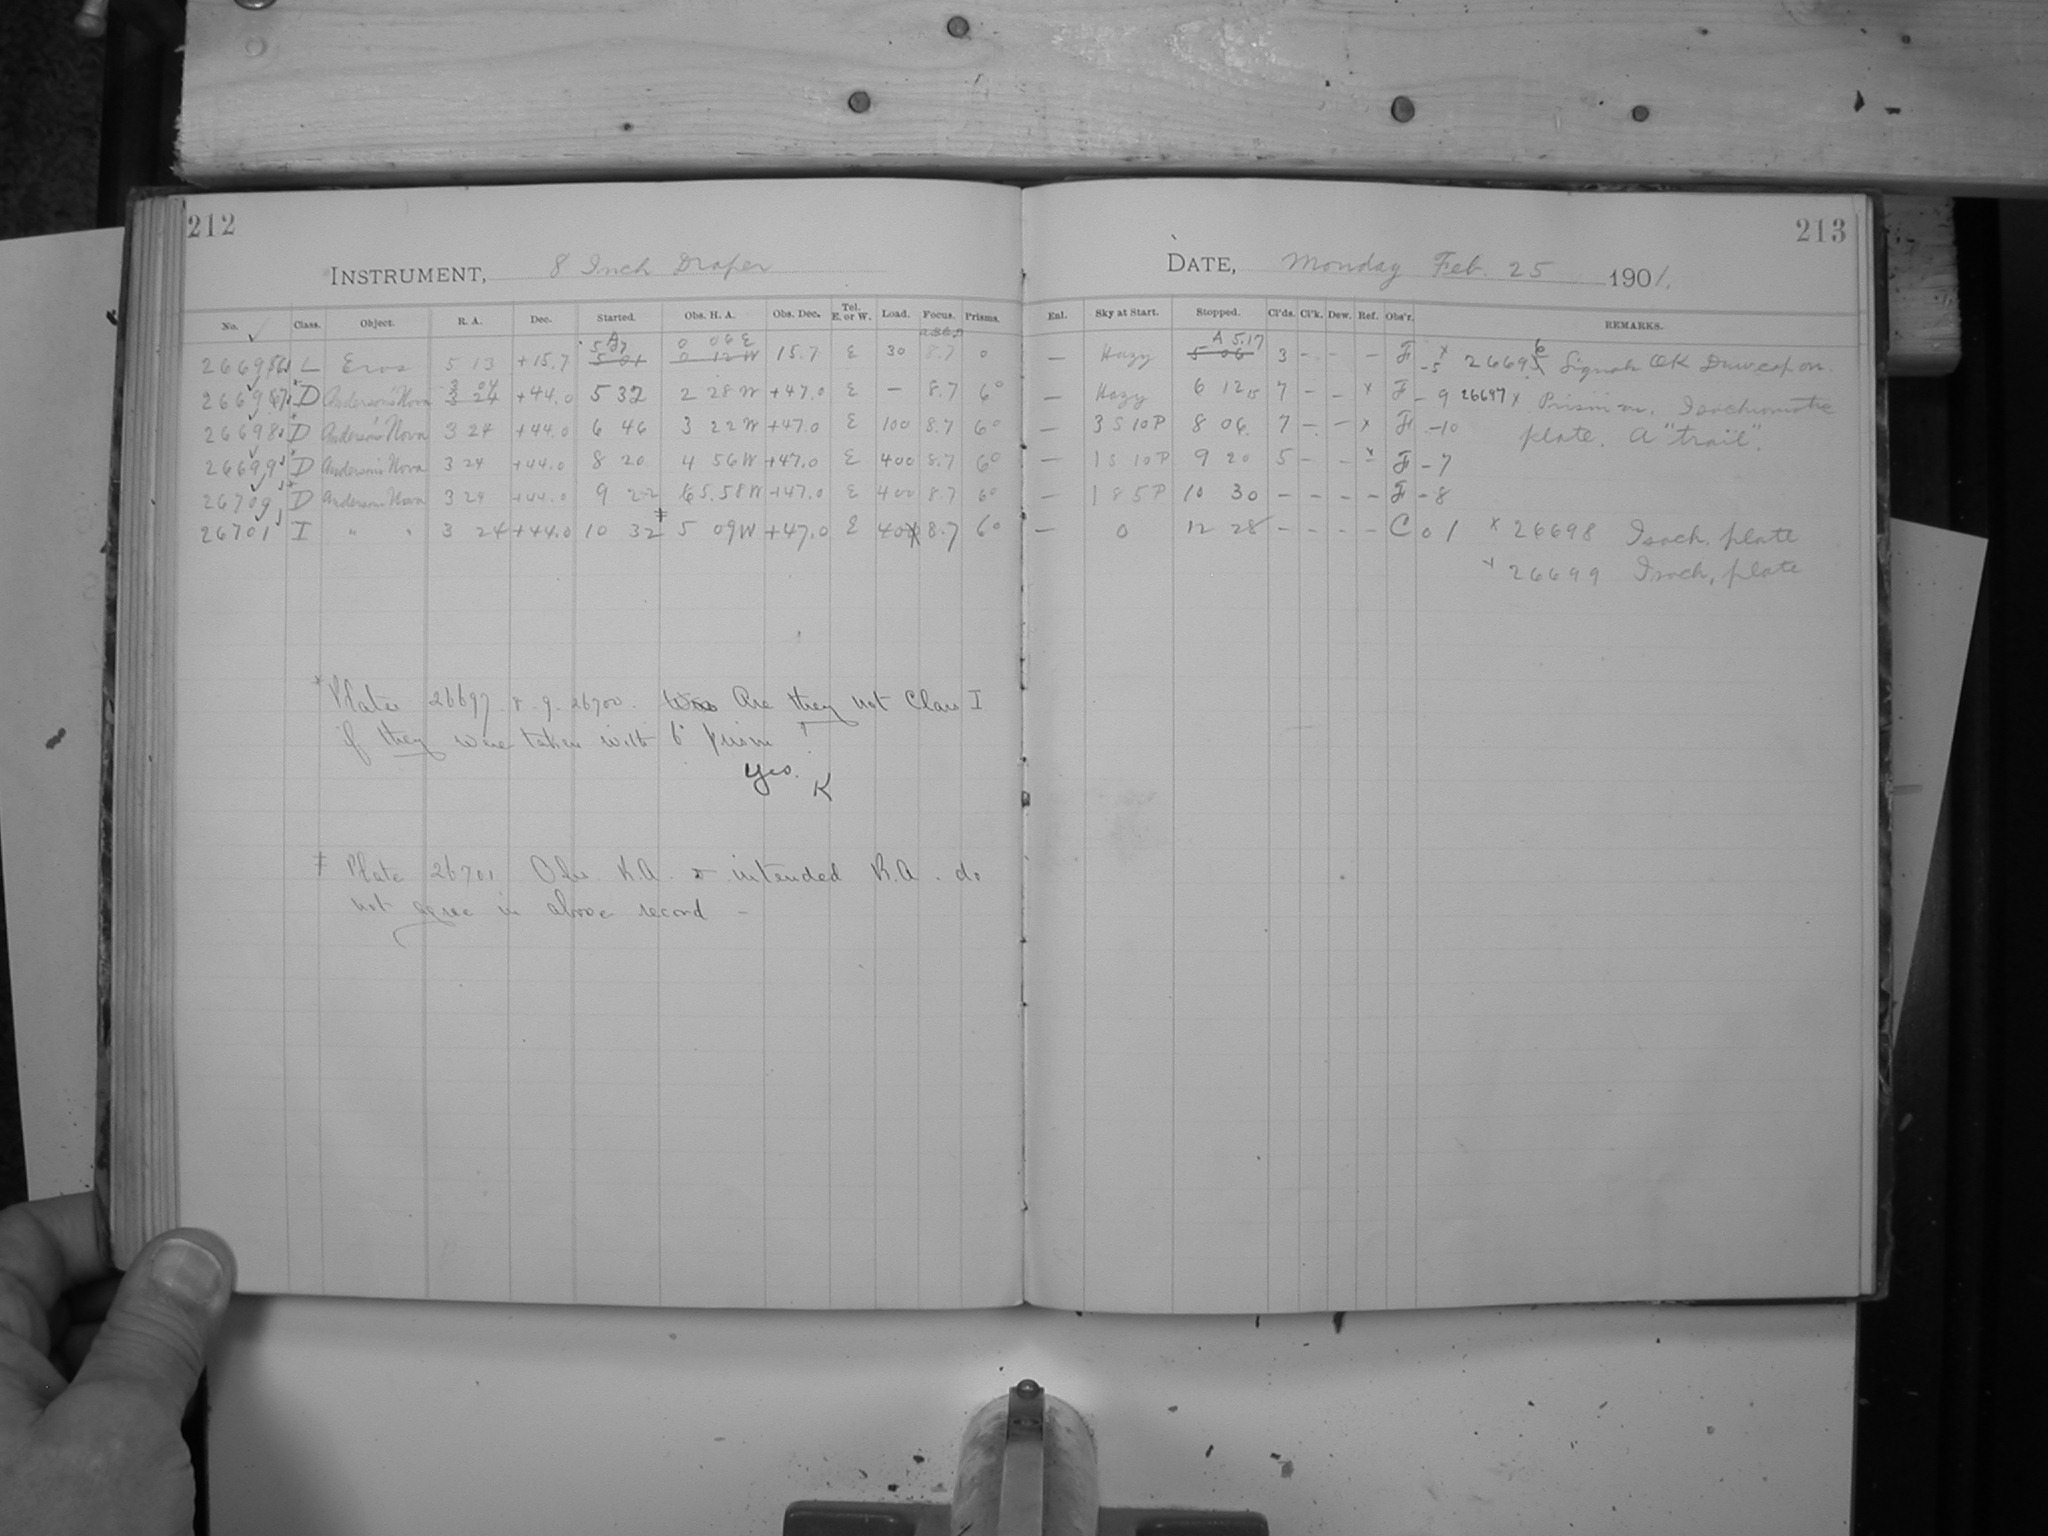 212
213
INSTRUMENT, 8 Inch Draper
DATE, Monday Feb. 25 1901.
No. Class. Object. R. A. Dec. Started. Obs. H. A. Obs. Dec. Tel. E. or W. Load. Focus. Prisms. Enl. Sky at Start. Stopped. Cl'ds. Cl'k. Dew. Ref. Obs'r. REMARKS.
26696 L Eros 5 13 +15.7 5 01 0 06 E 0 12 W 15.7 E 30 8.7 0 — Hazy A 5.17 5 06 3 - - - F -5 x 26696 Signals OK Dewcap on.
26697 D Anderson's Nova 3 04 3 24 +44.0 5 32 2 28 W +47.0 E — 8.7 6° — Hazy 6 12 15 7 - - x F -9 26697 x Prism on. Isochromatic
26698 D Anderson's Nova 3 24 +44.0 6 46 3 22 W +47.0 E 100 8.7 6° — 3 S 10 P 8 06 7 - - x F -10 plate. A "trail".
26699 D Anderson's Nova 3 24 +44.0 8 20 4 56 W +47.0 E 400 8.7 6° — 1 S 10 P 9 20 5 - - x F -7
26700 D Anderson's Nova 3 24 +44.0 9 22 5.58 W +47.0 E 400 8.7 6° — 1 8 5 P 10 30 - - - - F -8
26701 I " " 3 24 +44.0 10 32 ‡ 5 09 W +47.0 E 400 8.7 6° — 0 12 28 - - - - C 0 1 x 26698 Isoch. plate
x 26699 Isoch. plate
* Plates 26697. 8. 9. 26700. Was Are they not Class I
if they were taken with 6° prism?
Yes.
K
‡ Plate 26701 Obs. R.A. & intended R.A. do
not agree in above record —